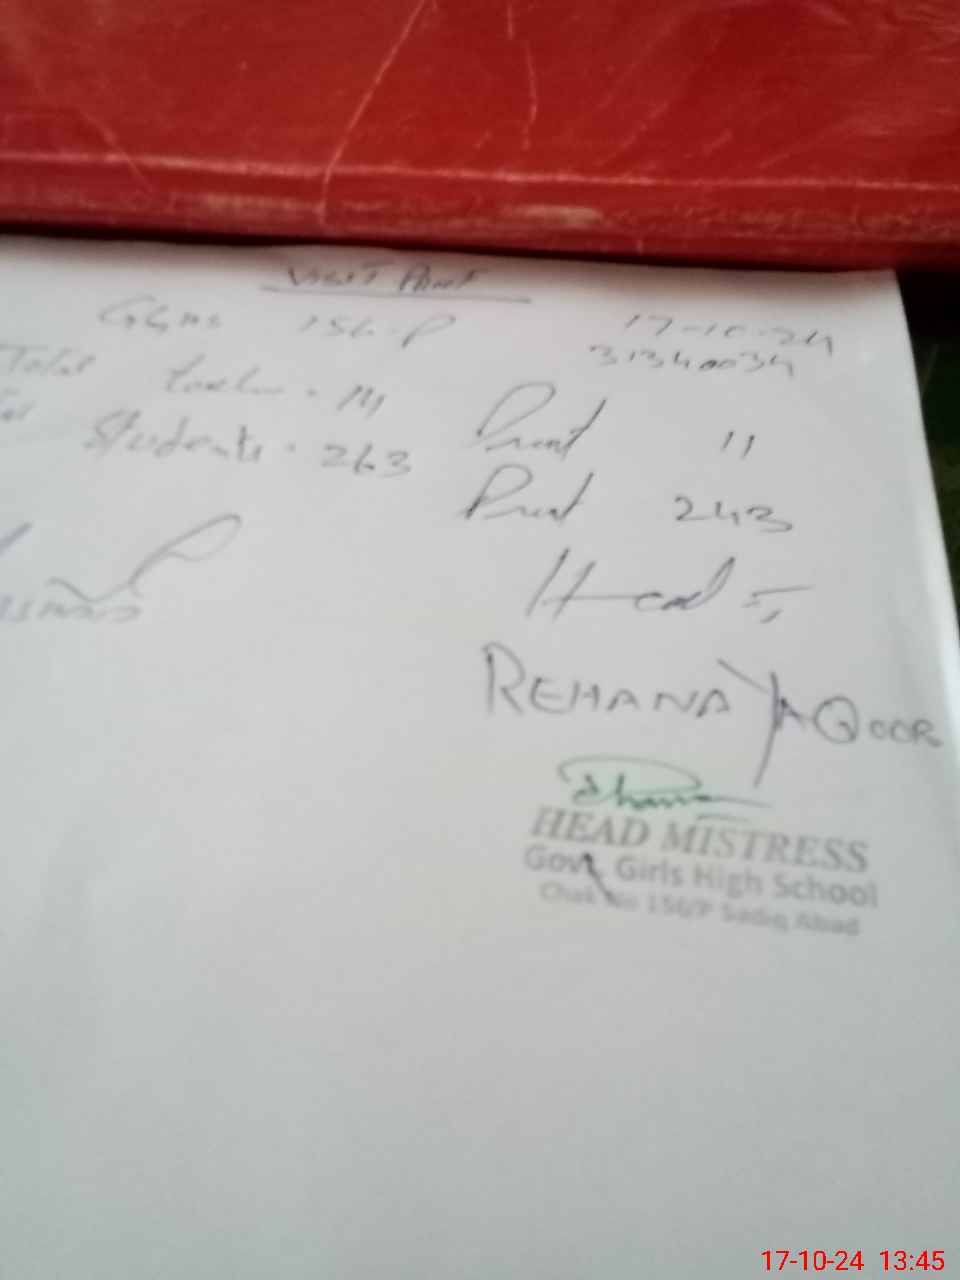 VISIT
GGHS 156-P 17-10-24
31340034
Total 14 11
Students 263 243
Head
REHANA YAQOOR
HEAD MISTRESS
Govt. Girls High School
Chak No 156/P Sadiq Abad
17-10-24 13:45